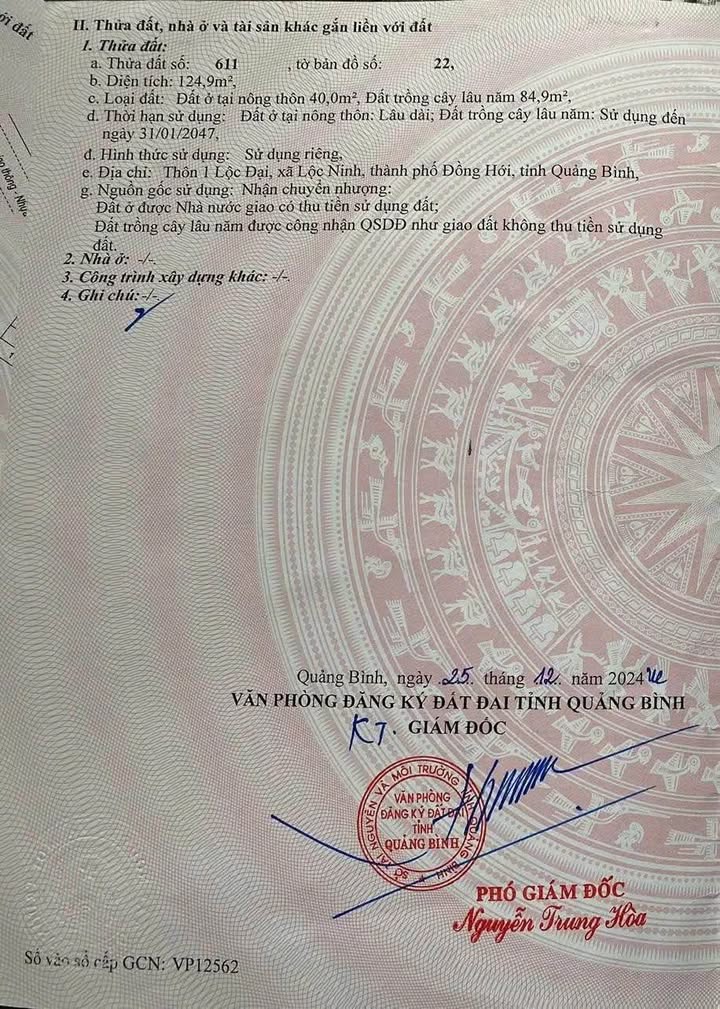 ới đất
II. Thửa đất, nhà ở và tài sản khác gắn liền với đất
1. Thửa đất:
a. Thửa đất số: 611 , tờ bản đồ số: 22,
b. Diện tích: 124,9m²,
c. Loại đất: Đất ở tại nông thôn 40,0m², Đất trồng cây lâu năm 84,9m²,
d. Thời hạn sử dụng: Đất ở tại nông thôn: Lâu dài; Đất trồng cây lâu năm: Sử dụng đến
ngày 31/01/2047,
đ. Hình thức sử dụng: Sử dụng riêng,
e. Địa chỉ: Thôn 1 Lộc Đại, xã Lộc Ninh, thành phố Đồng Hới, tỉnh Quảng Bình,
g. Nguồn gốc sử dụng: Nhận chuyển nhượng:
Đất ở được Nhà nước giao có thu tiền sử dụng đất;
Đất trồng cây lâu năm được công nhận QSDĐ như giao đất không thu tiền sử dụng
đất.
2. Nhà ở: -/-.
3. Công trình xây dựng khác: -/-.
4. Ghi chú: -/-.
Quảng Bình, ngày 25 tháng 12 năm 2024
VĂN PHÒNG ĐĂNG KÝ ĐẤT ĐAI TỈNH QUẢNG BÌNH
KT. GIÁM ĐỐC
SỞ TÀI NGUYÊN VÀ MÔI TRƯỜNG TỈNH QUẢNG BÌNH
VĂN PHÒNG
ĐĂNG KÝ ĐẤT ĐAI
TỈNH
QUẢNG BÌNH
PHÓ GIÁM ĐỐC
Nguyễn Trung Hòa
Số vào sổ cấp GCN: VP12562